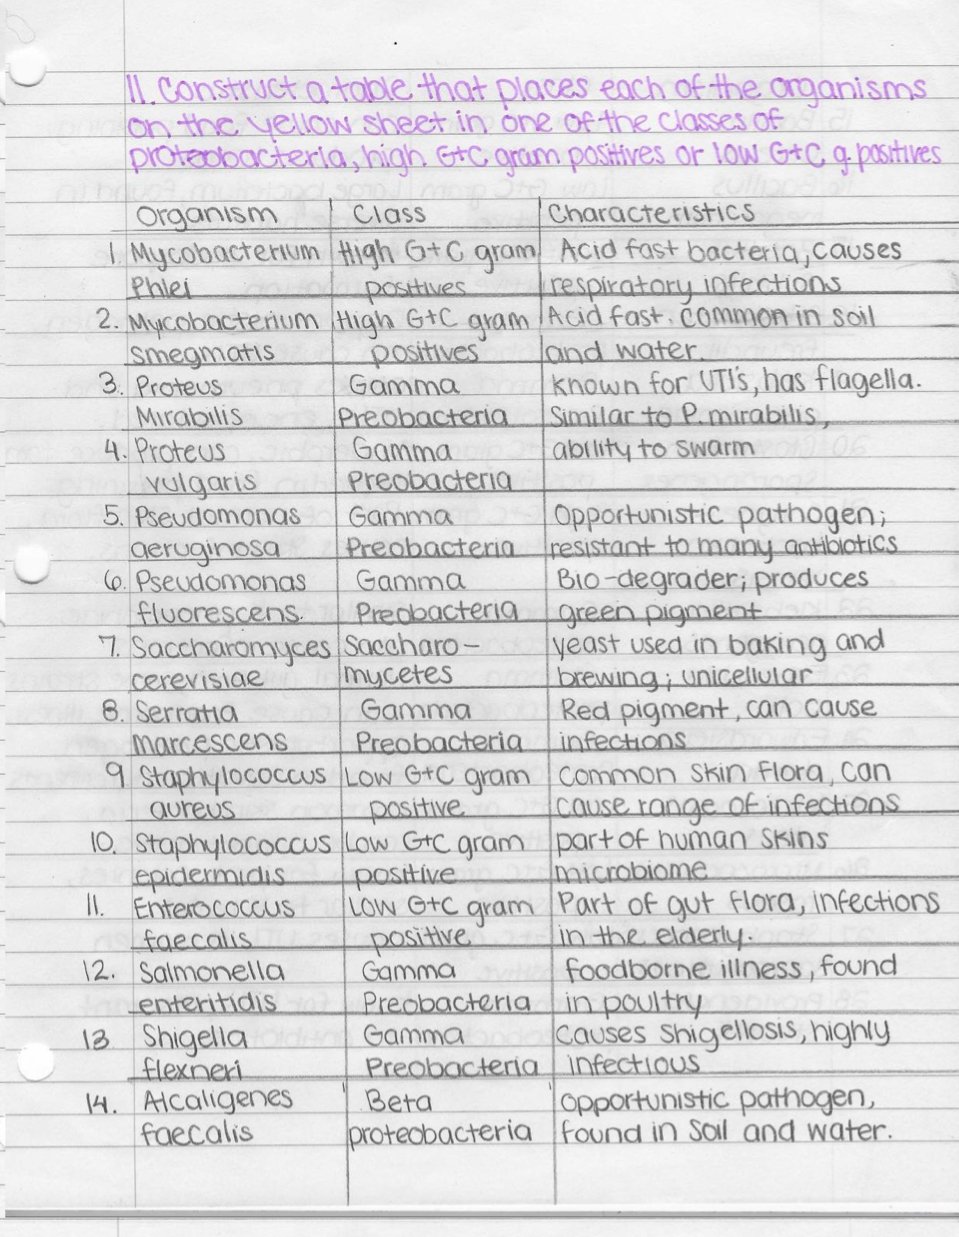 11. Construct a table that places each of the organisms
on the yellow sheet in one of the classes of
proteobacteria, high G+C gram positives or low G+C g. positives
Organism Class Characteristics
1. Mycobacterium High G+C gram Acid fast bacteria, causes
Phlei positives respiratory infections
2. Mycobacterium High G+C gram Acid fast. common in soil
smegmatis positives and water.
3. Proteus Gamma Known for UTI's, has flagella.
Mirabilis Preobacteria Similar to P. mirabilis,
4. Proteus Gamma ability to swarm
vulgaris Preobacteria
5. Pseudomonas Gamma Opportunistic pathogen;
aeruginosa Preobacteria resistant to many antibiotics
6. Pseudomonas Gamma Bio-degrader; produces
fluorescens. Preobacteria green pigment
7. Saccharomyces Saccharo- yeast used in baking and
cerevisiae mycetes brewing; unicellular
8. Serratia Gamma Red pigment, can cause
marcescens Preobacteria infections
9. Staphylococcus Low G+C gram Common skin flora, can
aureus positive cause range of infections
10. Staphylococcus Low G+C gram part of human skins
epidermidis positive microbiome
11. Enterococcus Low G+C gram Part of gut flora, infections
faecalis positive in the elderly.
12. Salmonella Gamma foodborne illness, found
enteritidis Preobacteria in poultry
13 Shigella Gamma Causes Shigellosis, highly
flexneri Preobacteria infectious
14. Alcaligenes Beta opportunistic pathogen,
faecalis proteobacteria found in soil and water.